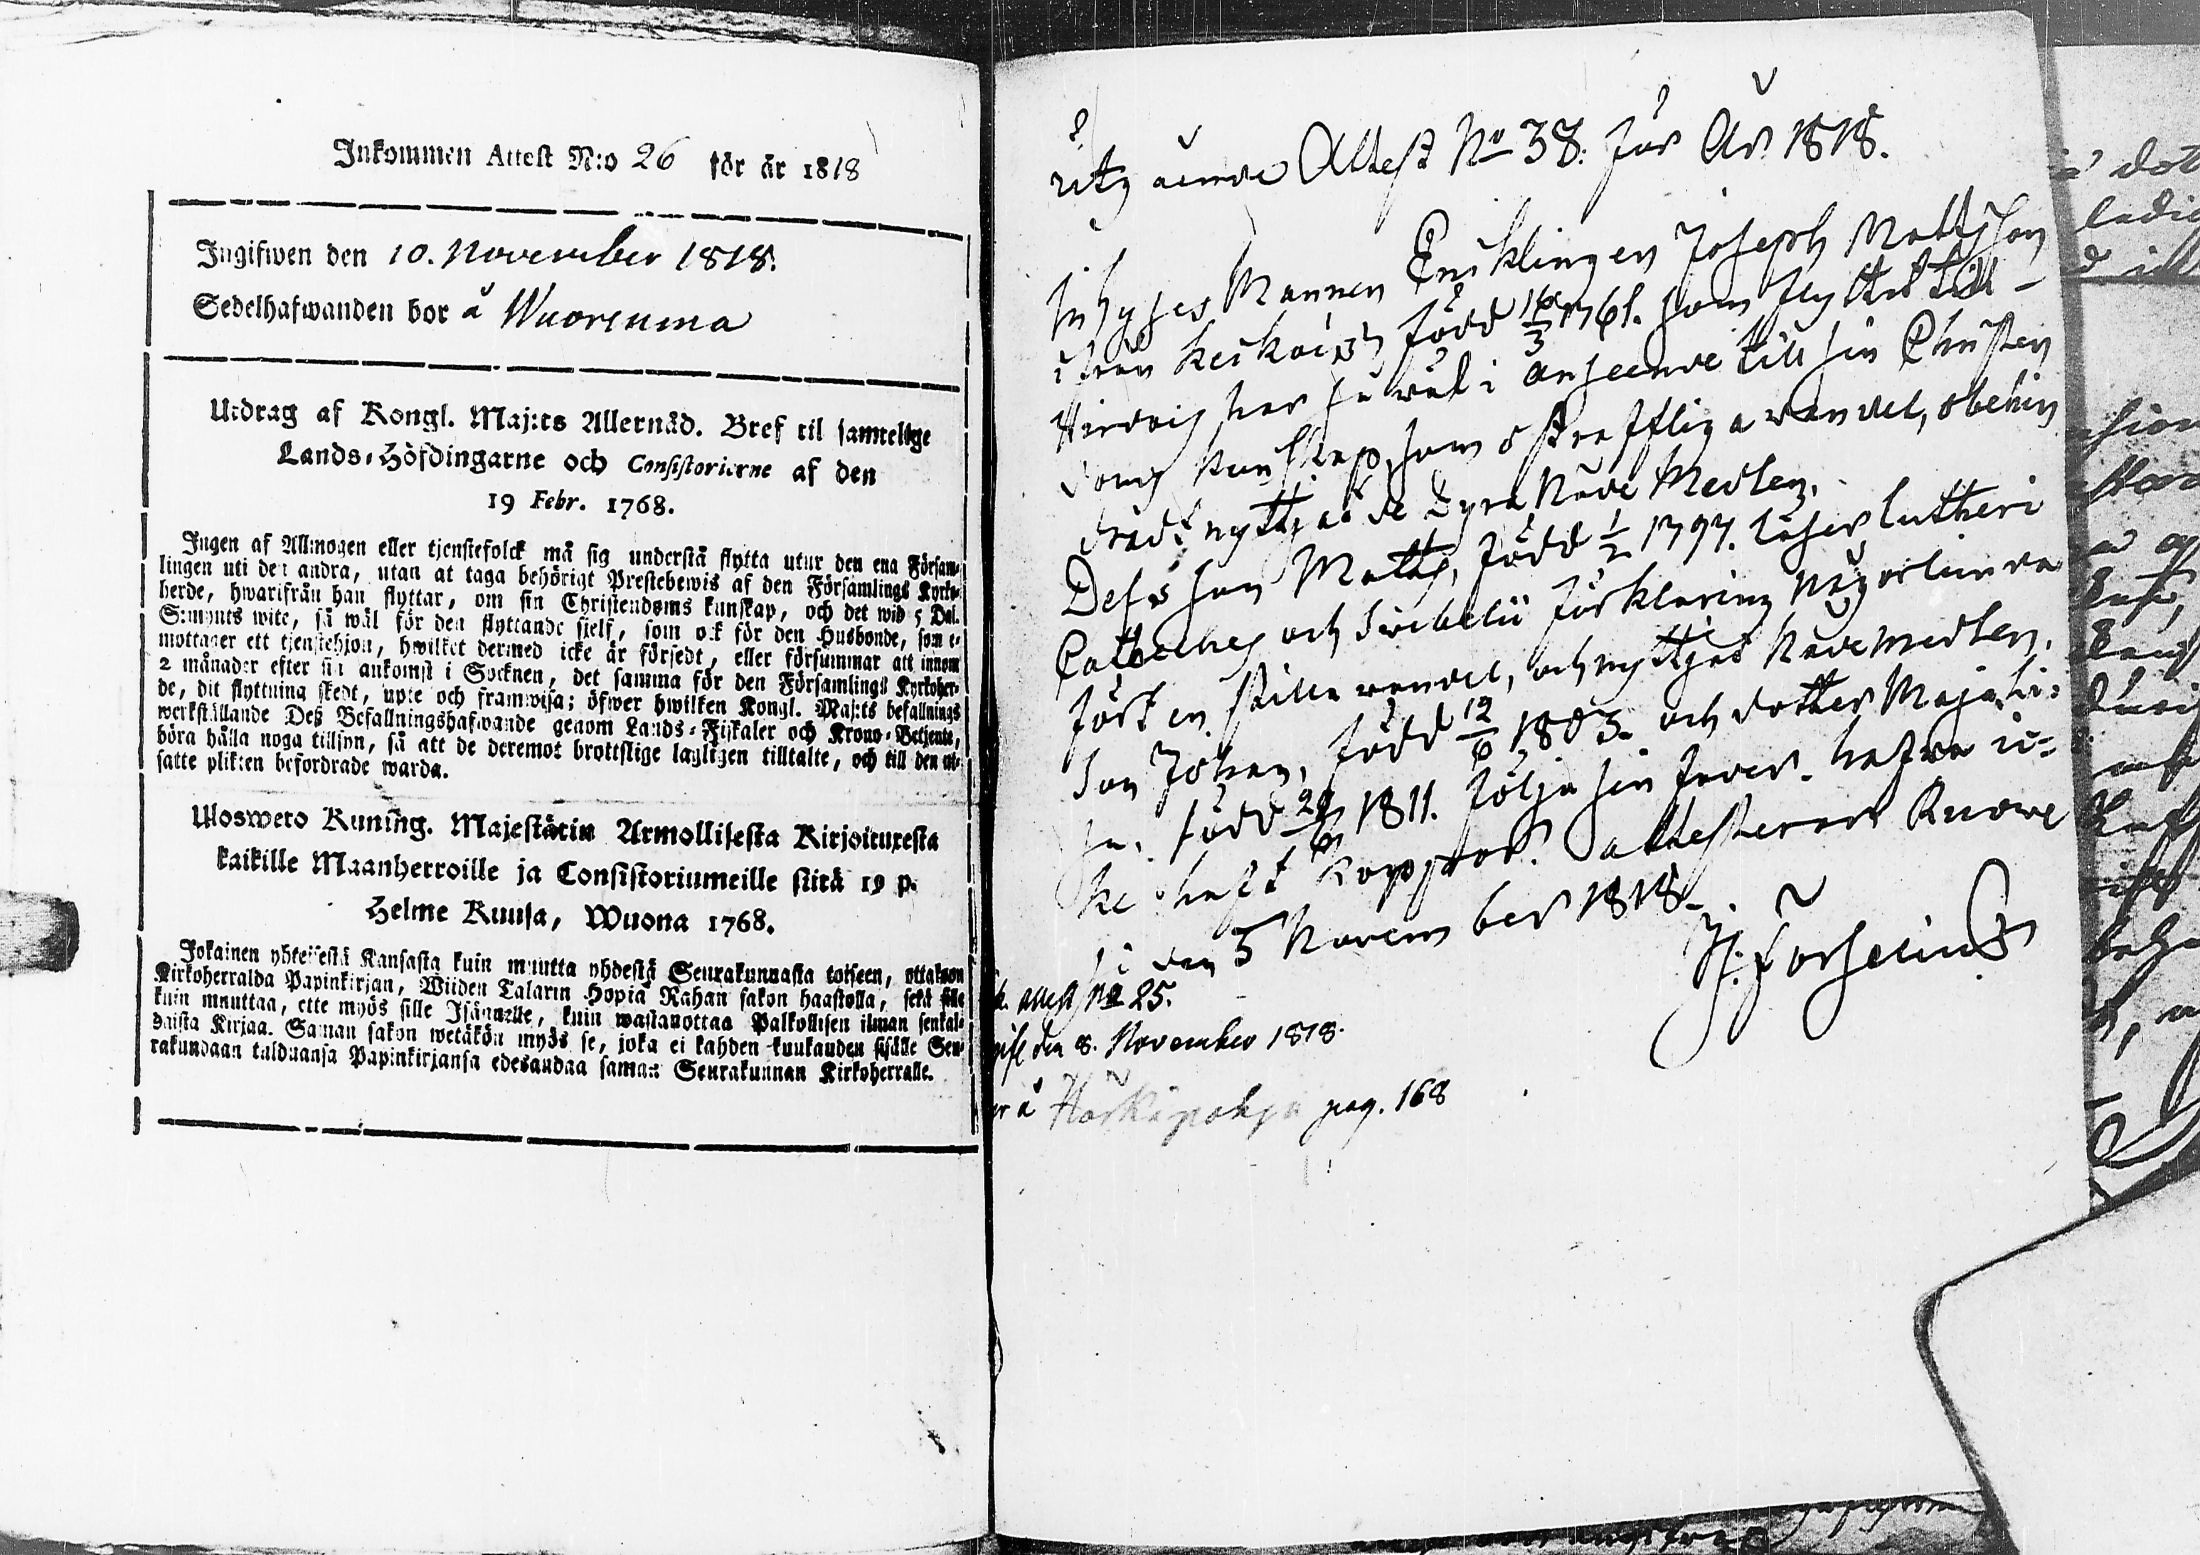 Inkommen Attest N:o 26 för år 1818
Ingifwen den 10. November 1818.
Sedelhafwanden bor å Wuorenma
Utdrag af Kongl. Maj:ts Allernåd. Bref til samtelige
Lands-Höfdingarne och Consistorierne af den
19 Febr. 1768.
Ingen af Allmogen eller tjenstefolck må sig understå flytta utur den ena Försam-
lingen uti den andra, utan at taga behörigt Prestebewis af den Församlings Kyrko-
herde, hwarifrån han flyttar, om sin Christendoms kunskap, och det wid 5 Dal.
S:mynts wite, så wäl för den flyttande sjelf, som ock för den Husbonde, som e-
mottager ett tjenstehjon, hwilket dermed icke är försedt, eller försummar att innom
2 månader efter sin ankomst i Socknen, det samma för den Församlings Kyrkoher-
de, dit flyttning skedt, upte och framwisa; öfwer hwilken Kongl. Maj:ts befallnings
werkställande Deß Befallningshafwande genom Lands-Fiskaler och Krono-Betjente,
böra hålla noga tillsyn, så att de deremot brottslige lagligen tilltalte, och till den ut-
satte plikten befordrade warda.
Ulosweto Kuning. Majestätin Armollisesta Kirjoituxesta
kaikille Maanherroille ja Consistoriumeille siitä 19 p.
Helme Kuusa, Wuona 1768.
Jokainen yhteisestä Kansasta kuin muutta yhdestä Seurakunnasta toiseen, ottakoon
Kirkoherralda Papinkirjan, Wiiden Talarin Hopia Rahan sakon haastolla, sekä sille
kuin muuttaa, ette myös sille Isännälle, kuin wastanottaa Palkollisen ilman senkal-
daista Kirjaa. Saman sakon wetäkön myös se, joka ei kahden kuukauden sisälle Seu-
rakundaan tulduansa Papinkirjansa edesandaa saman Seurakunnan Kirkoherralle.
utg ående Attest No 38. för År 1818.
Inhyses Mannen Enklingen Joseph Mattsson
ifrån född 16/3 1761. som flyttar till
har så wäl i anseende till sin Christen
doms kunskap, som ostraffliga wandel, obehin
dradt nyttjat de dyra Nåde Medlen.
Dess son Matts, född 1/2 1797. läser Lutheri
Catheches och Swebelii förklaring någorlunda
fört en stilla wandel, och nyttjat Nåde medlen.
Son Johan, född 12/6 1803. och dotter Maja Li-
sa. född 1811. följa sin fader. hafwa ic-
ke haft koppor. attesterar Ruowe
si den 5 November 1818.
H: Forselius
attest No 25.
den 8. November 1818.
å Härkäpohja pag. 168